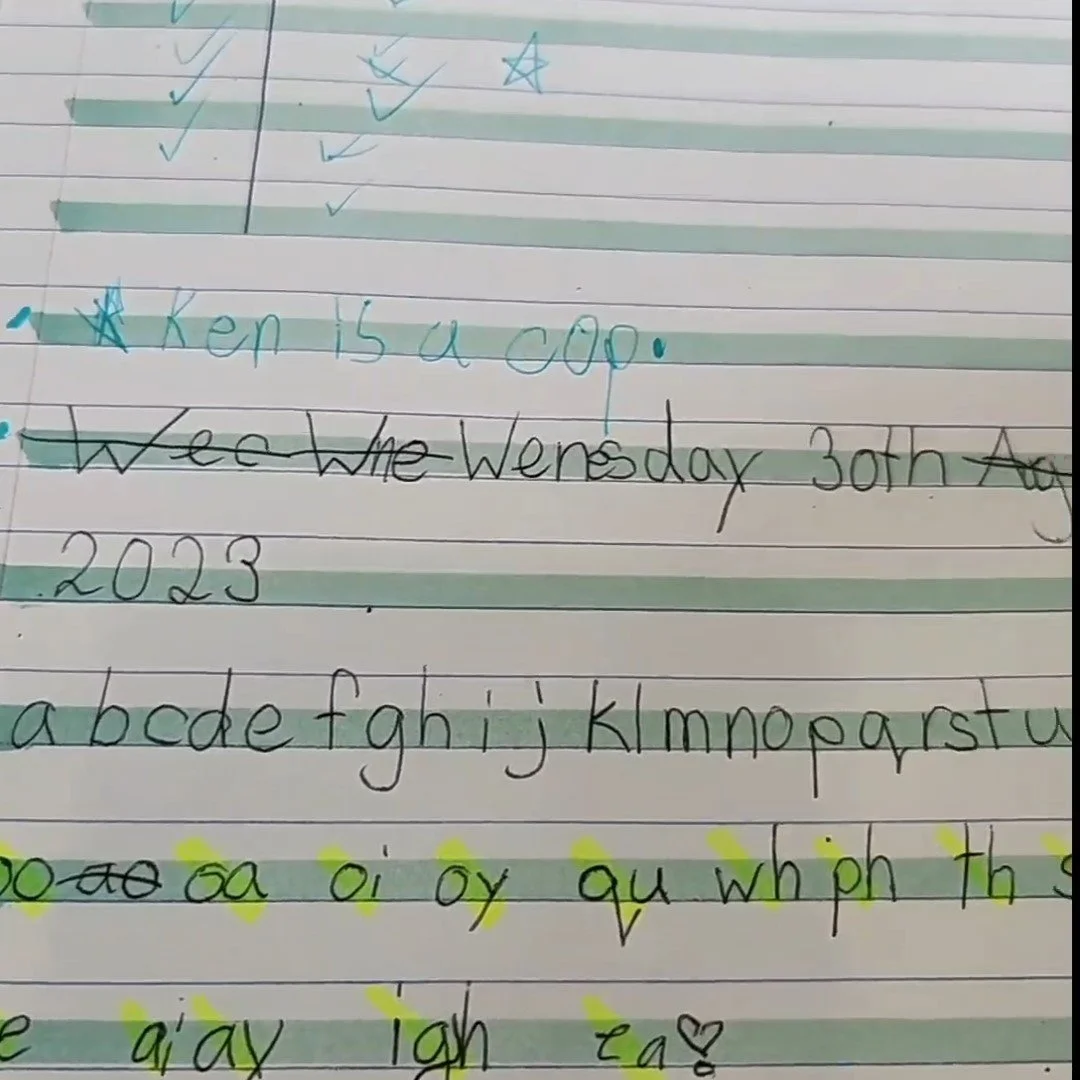 Ken is a cop.
Wec Whe Wensday 30th Ag
2023
a b c d e f g h i j k l m n o p q r s t u
oo ao oa oi oy qu wh ph th s
e ai ay igh ea